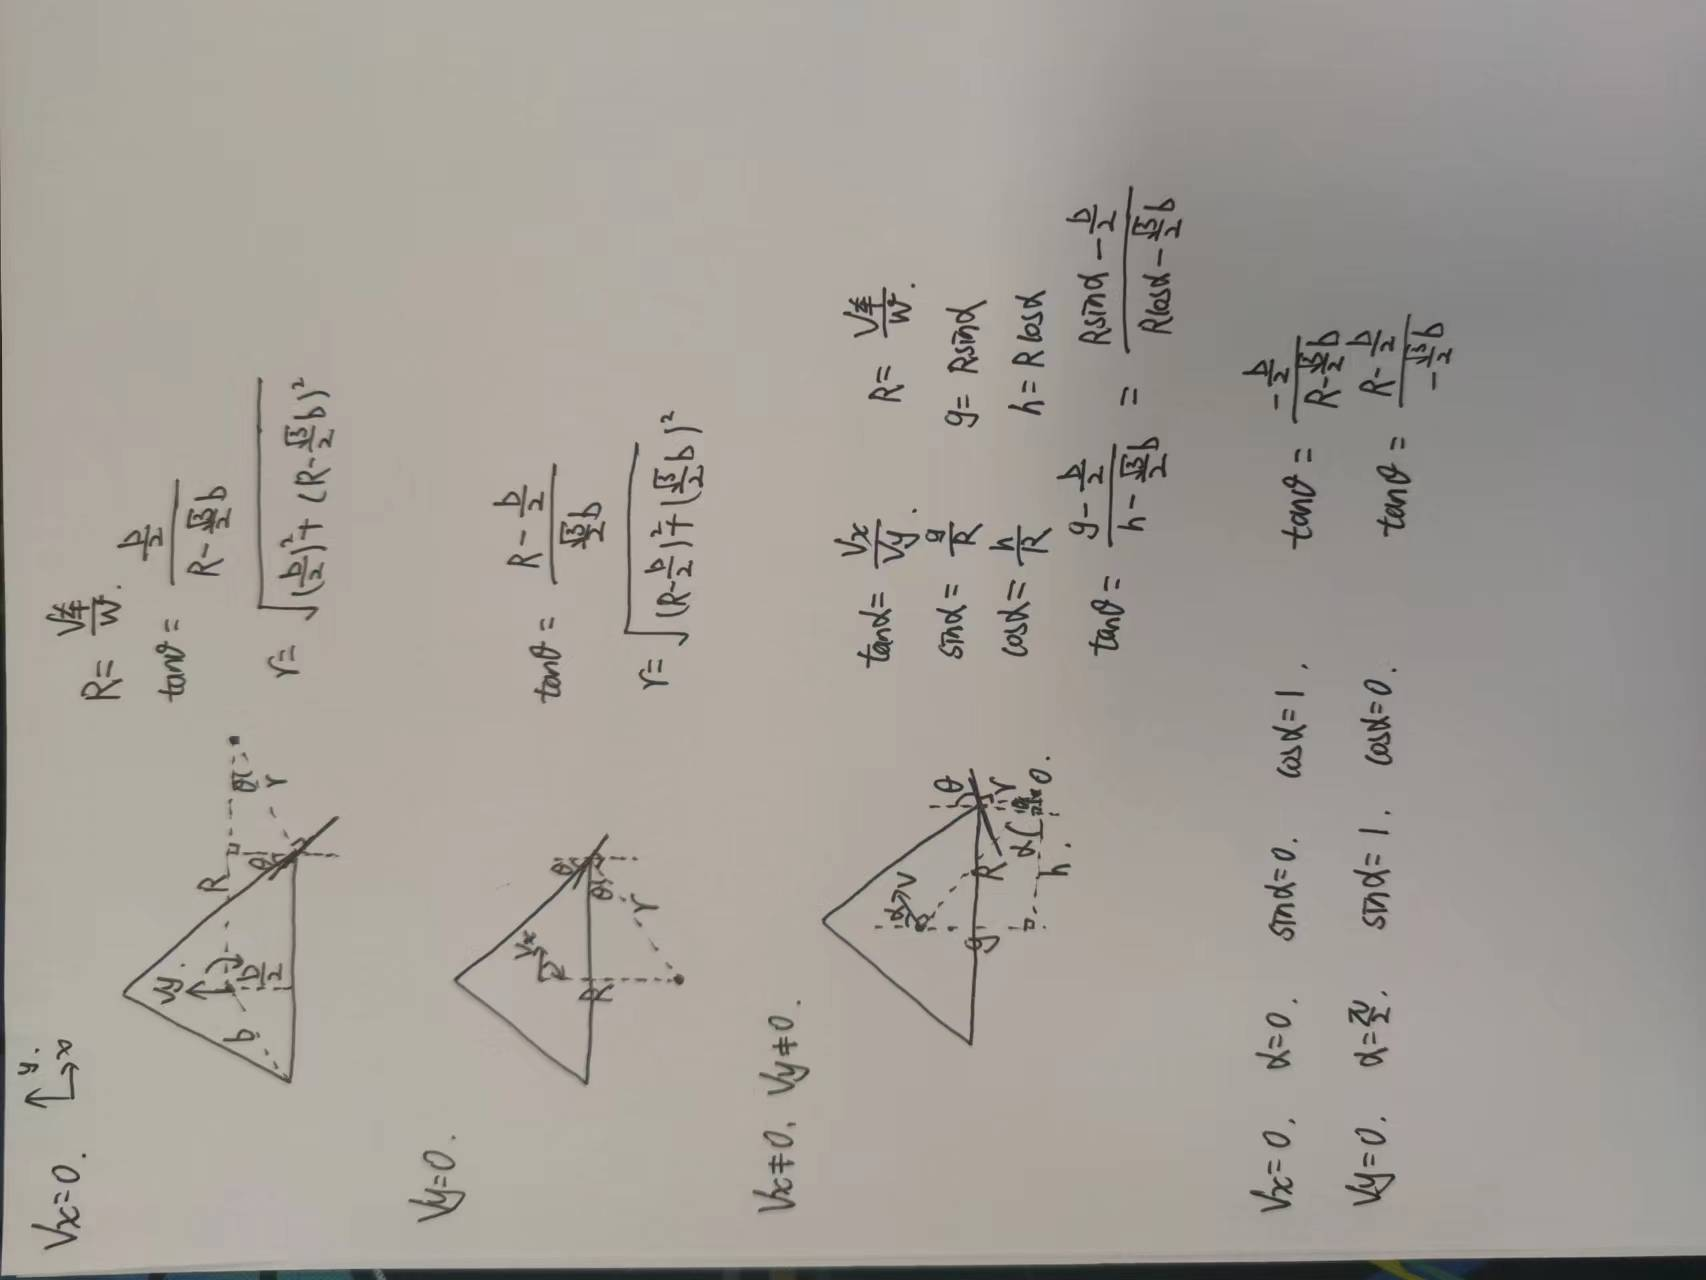 Vx=0. y. x
R= V车/w.
tanθ= (b/2)/(R-(√3/2)b)
r= √((b/2)²+(R-(√3/2)b)²)
Vy. b b/2 R θ θ r
Vy=0.
tanθ= (R-b/2)/((√3/2)b)
r= √((R-b/2)²+((√3/2)b)²)
Vx R θ θ r
Vx≠0, Vy≠0.
tanα= Vx/Vy. R= V车/w.
sinα= g/R g= Rsinα
cosα= h/R h= Rcosα
tanθ= (g-b/2)/(h-(√3/2)b) = (Rsinα-b/2)/(Rcosα-(√3/2)b)
α V g R θ r α O. h.
Vx=0. α=0. sinα=0. cosα=1. tanθ= (-b/2)/(R-(√3/2)b)
Vy=0. α=π/2. sinα=1. cosα=0. tanθ= (R-b/2)/(-(√3/2)b)